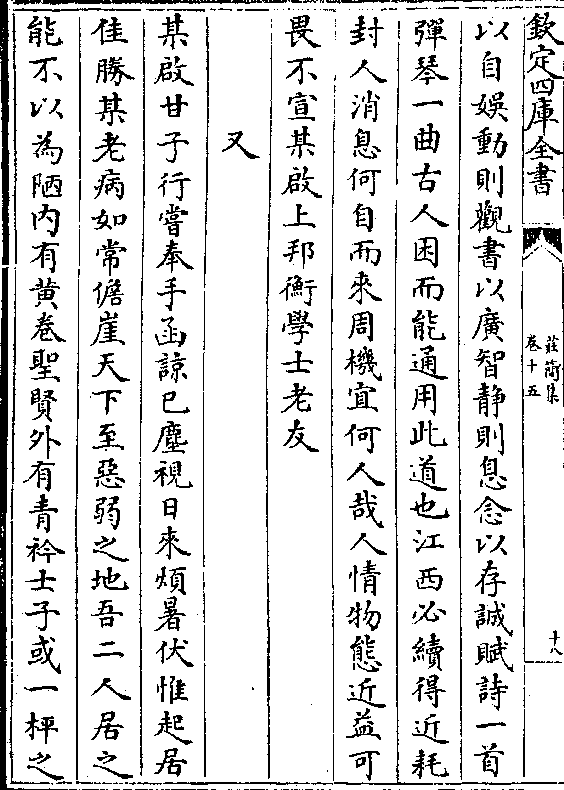 欽定四庫全書
莊簡集
卷十五
十八
以自娯動則觀書以廣智静則息念以存誠賦詩一首
彈琴一曲古人困而能通用此道也江西必續得近耗
封人消息何自而來周機宜何人哉人情物態近益可
畏不宣某啟上邦衡學士老友
又
某啟甘子行嘗奉手函諒已塵視日來煩暑伏惟起居
佳勝某老病如常儋崖天下至惡弱之地吾二人居之
能不以為陋内有黄卷聖賢外有青衿士子或一枰之